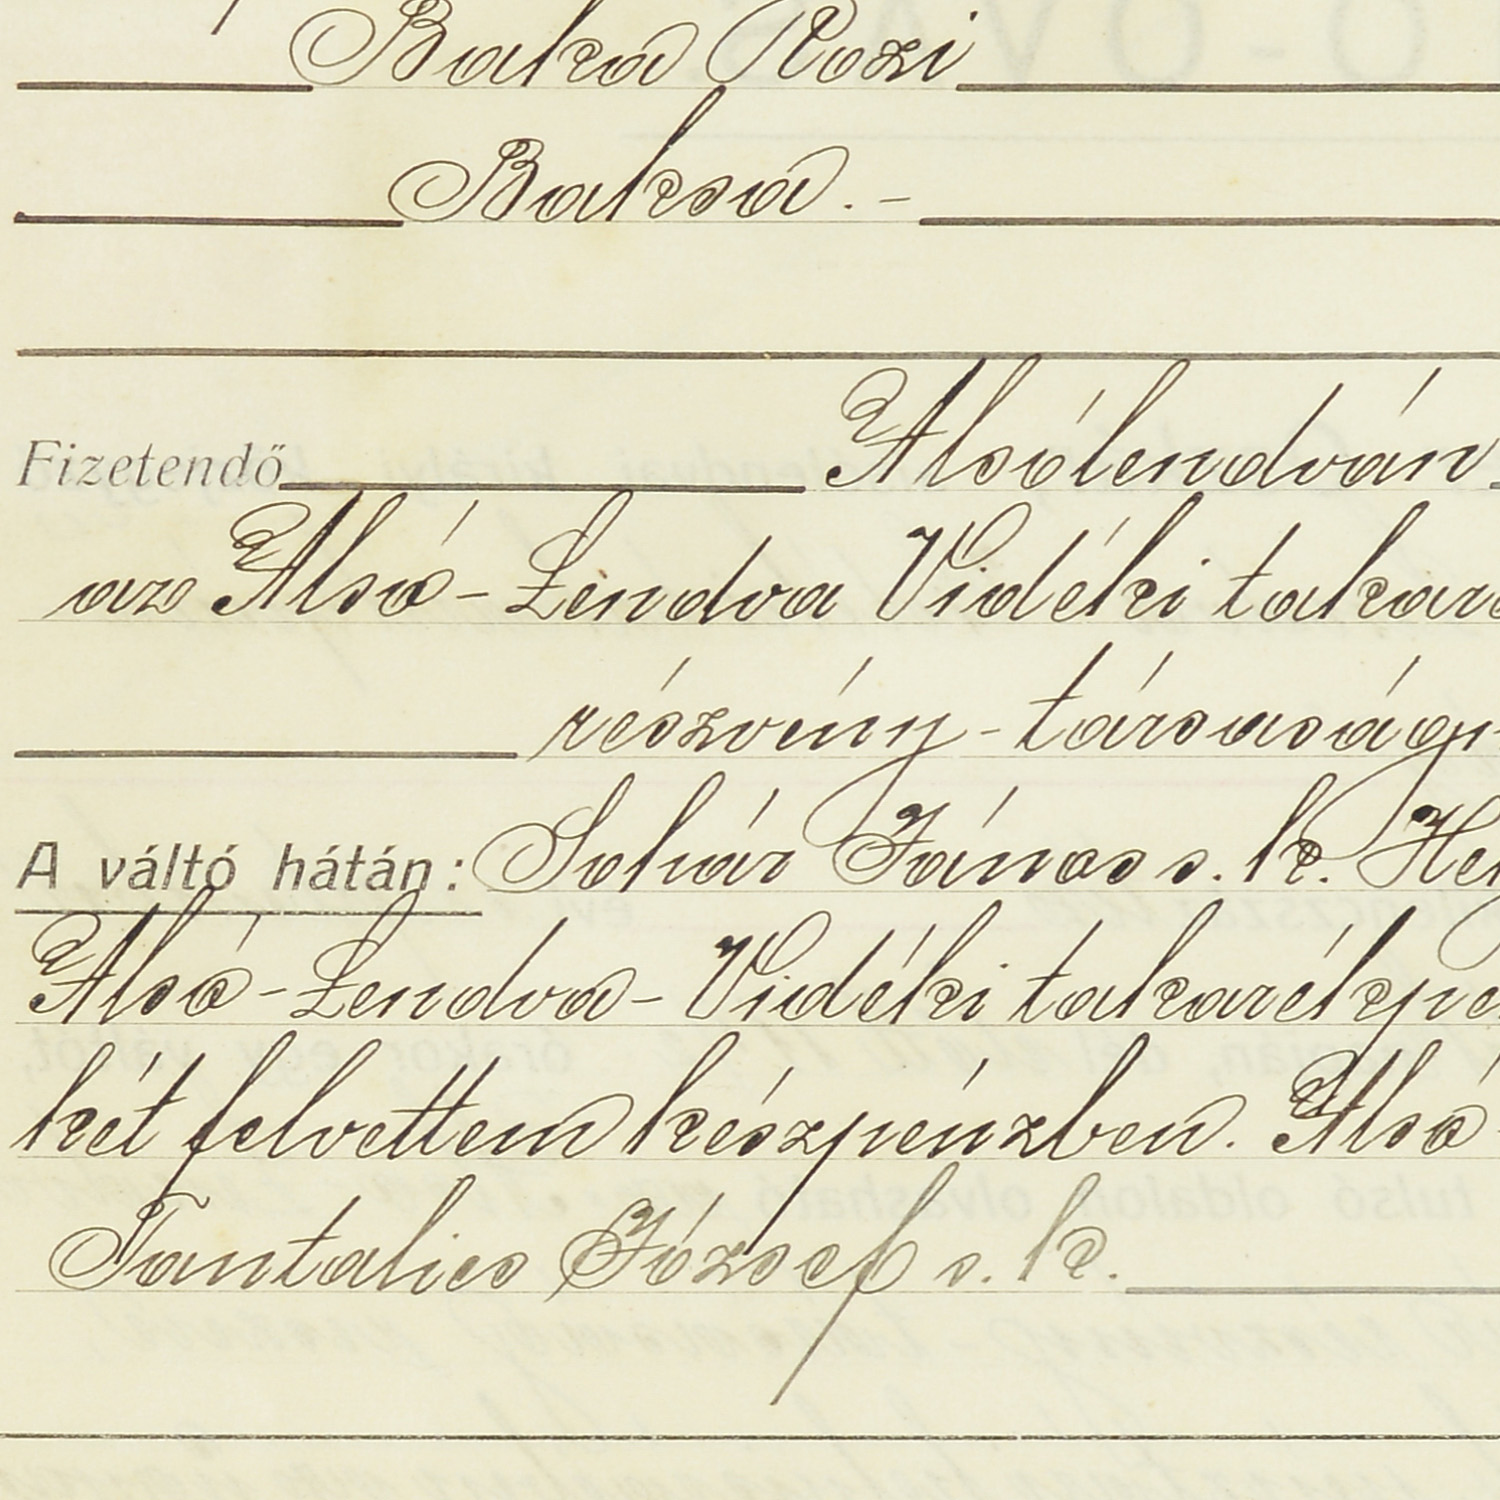 Baka Rozi
Baksa.-
Fizetendő Alsólendván
az Alsó-Lendva Vidéki takaré
részvény-társaság
A váltó hátán: Sohár János s. k. He
Alsó-Lendva-Vidéki takarékpé
két felvettem készpénzben. Alsó-
Tantalics József s. k.